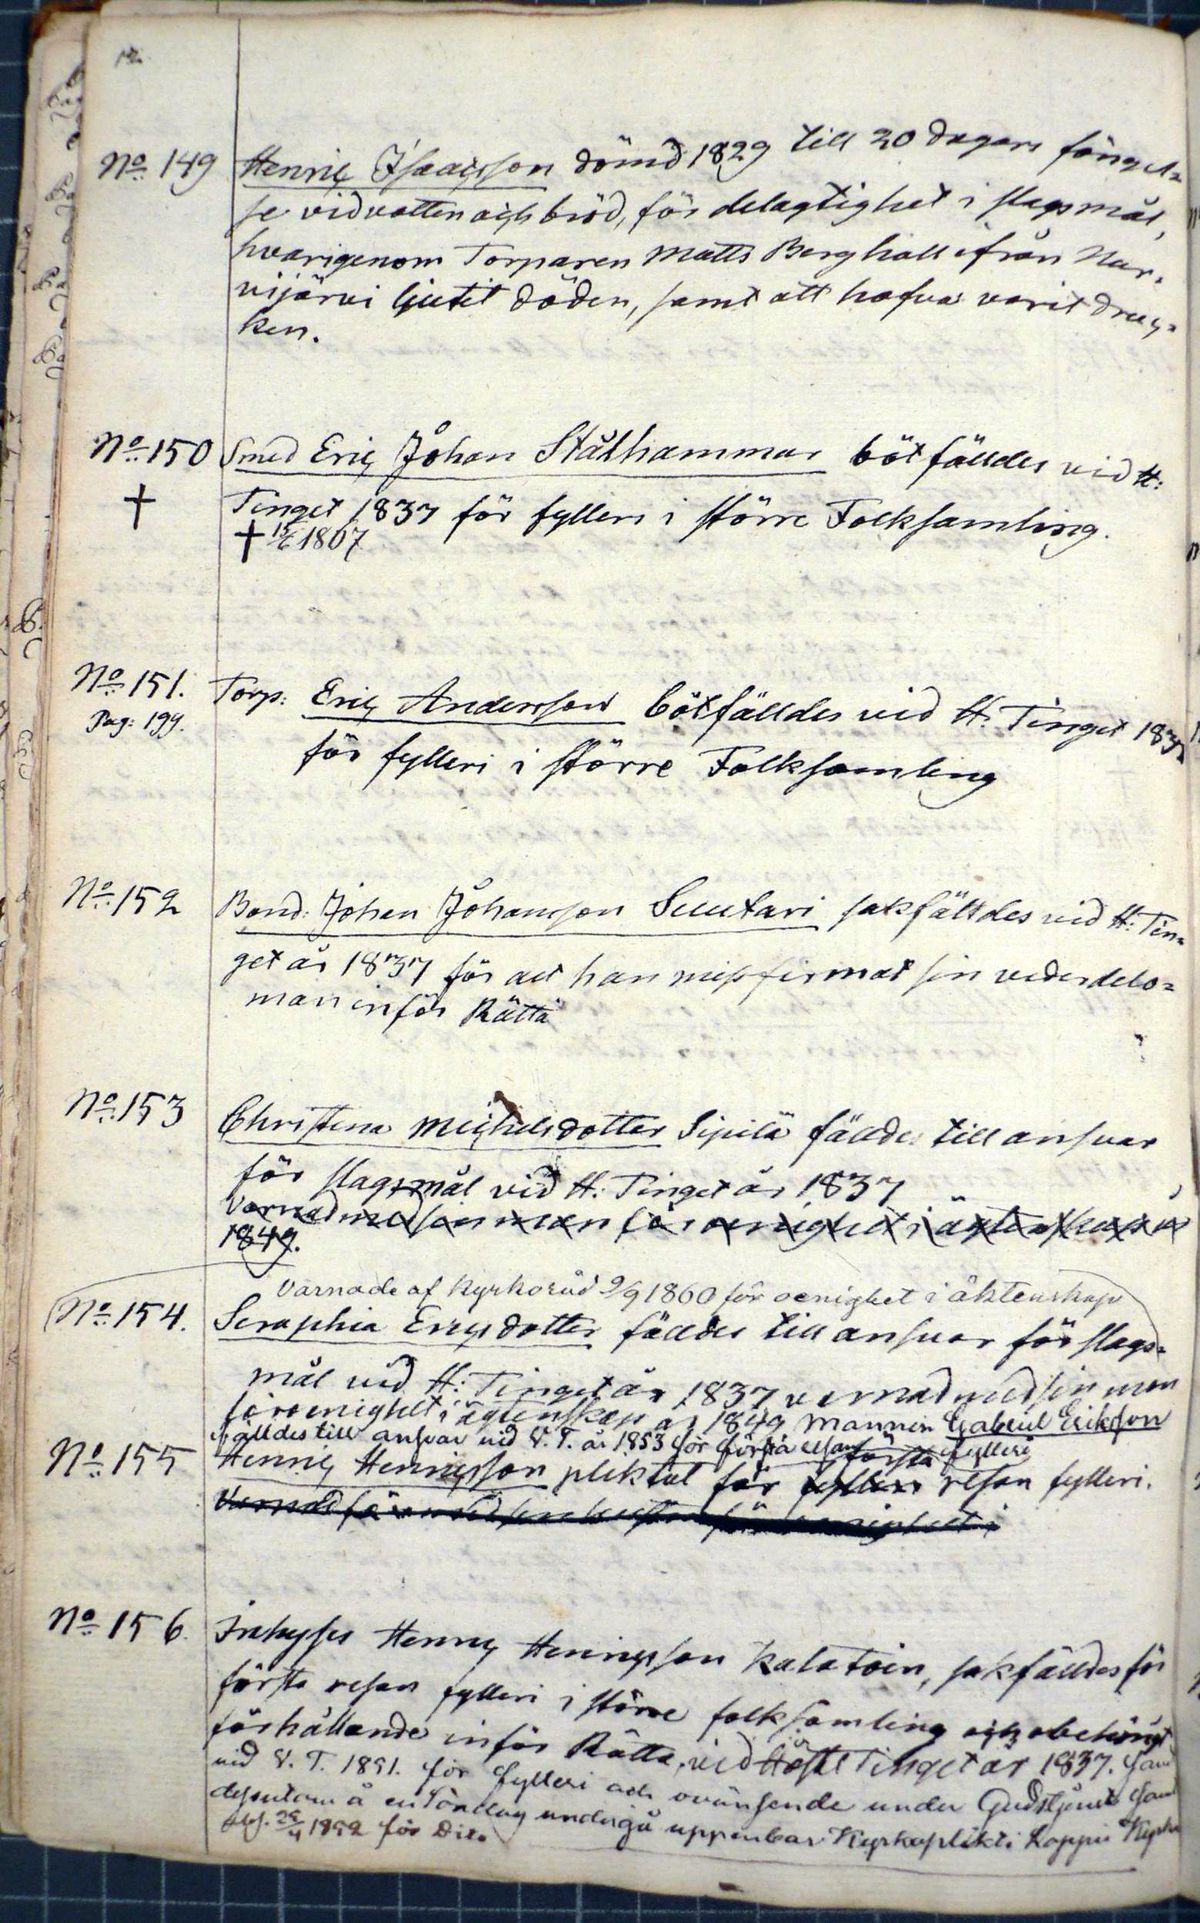 12.
No 149 Henric Isaacsson dömd 1829 till 20 dagars fängel=
se vid vatten och bröd, för delagtighet i slagsmål,
hvarigenom Torparen Matts Berghäll ifrån Nur-
mijärvi ljutit döden, samt att hafva varit druc-
ken.
No 150 Smed Eric Johan Stålhammar bötfälldes vid H:
† Tinget 1837 för fylleri i större Folksamling.
† 1867
No 151. Torp: Eric Andersson bötfälldes vid H. Tinget 1837
Pag: 199. för fylleri i större Folksamling
No 152 Bond: Johan Johansson Suutari sakfälldes vid H: Tin=
get år 1837 för det han missfirmat sin vederdelo=
man inför Rätta
No 153 Christina Michelsdotter Sipilä fälldes till ansvar
för slagsmål vid H: Tinget år 1837
Varnad med sin man för oenighet i äktenskap
1849.
Varnade af Kyrkoråd 9/9 1860 för oenighet i äktenskap
No 154. Seraphia Ericsdotter fälldes till ansvar för slags=
mål vid H: Tinget år 1837 varnad med sin man
för oenighet i ägtenskap år 1849 Mannen Gabriel Erikson
fälldes till ansvar vid V. T. år 1853 för första resan fylleri
första
No 155 Henric Henricsson pliktat för fylleri resan fylleri.
Varnad för oenighet i
No 156. Inhyses Henric Henricsson Kalatoin, sakfälldes för
första resan fylleri i större folksamling och obehörigt
förhållande inför Rätta, vid Höste Tinget år 1837. Samt
vid V. T. 1851. för fylleri och oväsende under Gudstjenst samt
dessutom å en Söndag undergå uppenbar Kyrkoplikt i Loppis Kyrka
1852 för Dito